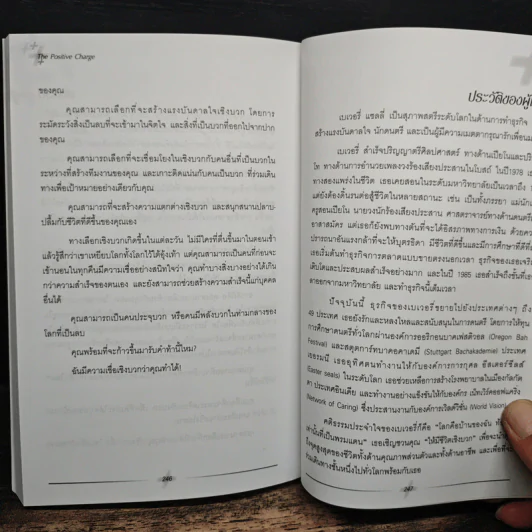 The Positive Charge
ของคุณ
คุณสามารถเลือกที่จะสร้างแรงบันดาลใจเชิงบวก โดยการ
ระมัดระวังสิ่งเป็นลบที่จะเข้ามาในจิตใจ และสิ่งที่เป็นบวกที่ออกไปจากปาก
ของคุณ
คุณสามารถเลือกที่จะเชื่อมโยงในเชิงบวกกับคนอื่นที่เป็นบวกใน
ระหว่างที่สร้างทีมงานของคุณ และเกาะติดแน่นกับคนเป็นบวก ที่ร่วมเดิน
ทางเพื่อเป้าหมายอย่างเดียวกับคุณ
คุณสามารถที่จะสร้างความแตกต่างเชิงบวก และสนุกสนานปลาบ-
ปลื้มกับชีวิตที่ดีขึ้นของคุณเอง
ทางเลือกเชิงบวกเกิดขึ้นในแต่ละวัน ไม่มีใครที่ตื่นขึ้นมาในตอนเช้า
แล้วรู้สึกว่าเขาเหยียบโลกทั้งโลกไว้ใต้อุ้งเท้า แต่คุณสามารถเป็นคนที่ก่อนจะ
เข้านอนในทุกคืนมีความเชื่ออย่างสนิทใจว่า คุณทำบางสิ่งบางอย่างได้เกิน
กว่าความสำเร็จของตนเอง และยังสามารถช่วยสร้างความสำเร็จนี้แก่บุคคล
อื่นได้
คุณสามารถเป็นคนประจุบวก หรือคนมีพลังบวกในท่ามกลางของ
โลกที่เป็นลบ
คุณพร้อมที่จะก้าวขึ้นมารับคำท้านี้ไหม?
ฉันมีความเชื่อเชิงบวกว่าคุณทำได้!
246
ประวัติของผู้
เบเวอรี่ แซลลี่ เป็นสุภาพสตรีระดับโลกในด้านการทำธุรกิจ
สร้างแรงบันดาลใจ นักดนตรี และเป็นผู้มีความเมตตากรุณารักเพื่อน
เบเวอรี่ สำเร็จปริญญาตรีศิลปศาสตร์ ทางด้านเปียโนและ
โท ทางด้านการอำนวยเพลงวงร้องเสียงประสานในโบสถ์ ในปี 1978
ทางสองแพร่งในชีวิต เธอเคยสอนในระดับมหาวิทยาลัยเป็นเวลาถึง
แต่ยังต้องดิ้นรนต่อสู้ชีวิตในหลายสถานะ เช่น เป็นทั้งภรรยา
ครูสอนเปียโน นายวงนักร้องเสียงประสาน ศาสตราจารย์ทางด้านดนตรี
อาสาสมัคร แต่เธอก็ยังพบทางตันที่จะได้อิสรภาพทางการเงิน
ปรารถนาอันแรงกล้าที่จะให้บุตรธิดา มีชีวิตที่ดีขึ้นและมีการศึกษาที่ดี
เธอเริ่มต้นทำธุรกิจการตลาดแบบขายตรงนอกเวลา ธุรกิจของเธอ
เติบโตและประสบผลสำเร็จอย่างมาก และในปี 1985
ลาออกจากมหาวิทยาลัย และทำธุรกิจนี้เต็มเวลา
ปัจจุบันนี้ ธุรกิจของเบเวอรี่ขยายไปยังประเทศต่างๆ
49 ประเทศ เธอยังรักและหลงใหลและสนับสนุนในการดนตรี โดยการให้ทุน
การศึกษาดนตรีทั่วโลกผ่านองค์การออริกอนบาคเฟสติวอล (Oregon Bah
Festival) และสตุตการ์ทบาคอคาเดมี (Stuttgart Bachakademie) ประเทศ
เยอรมนี เธออุทิศตนทำงานให้กับองค์การการกุศล อีสเตอร์ซีลส์
(Easter seals) ในระดับโลก เธอช่วยเหลือการสร้างโรงพยาบาลในเมืองกัลกัต
ตา ประเทศอินเดีย และทำงานอย่างแข็งขันให้กับองค์กร
(Network of Caring) ซึ่งประสานงานกับองค์การเวิลด์วิชั่น (World Vision)
คติธรรมประจำใจของเบเวอรี่ก็คือ "โลกคือบ้านของฉัน
เท่านั้นที่เป็นพรมแดน" เธอเชิญชวนคุณ "ให้มีชีวิตเชิงบวก"
ถึงจุดสูงสุดของชีวิตทั้งด้านคุณภาพส่วนตัวและทั้งด้านอาชีพ
ร่วมเดินทางชั้นหนึ่งไปทั่วโลกพร้อมกับเธอ
247